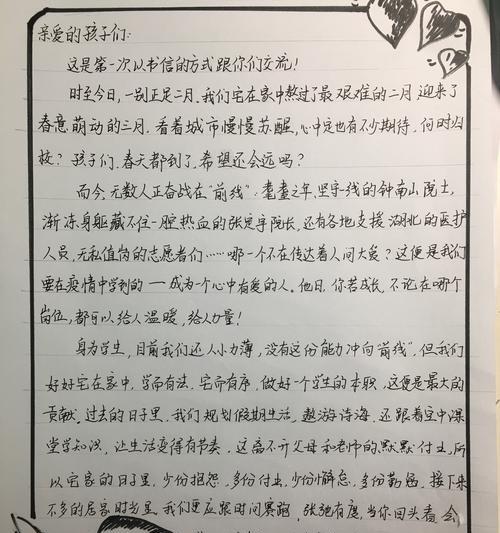 亲爱的孩子们:
这是第一次以书信的方式跟你们交流!
时至今日,一别正足二月,我们宅在家中熬过了最艰难的二月,迎来了
春意萌动的三月.看着城市慢慢苏醒,心中定也有不少期待,何时归
校?孩子们,春天都到了,希望还会远吗?
而今,无数人正奋战在"前线":耄耋之年,坚守一线的钟南山院士,
渐冻身躯藏不住一腔热血的张定宇院长,还有各地支援湖北的医护
人员,无私值岗的志愿者们……哪一个不在传达着人间大爱?这便是我们
要在疫情中学到的——成为一个心中有爱的人。他日,你若成长,不论在哪个
岗位,都可以给人温暖,给人力量!
身为学生,目前我们还人小力薄,没有这份能力冲向"前线",但我们
好好宅在家中,学而有法,宅而有序,做好一个学生的本职,这便是最大的
贡献.过去的日子里,我们规划假期生活,遨游诗海,还跟着空中课
堂学知识,让生活变得有节奏,这离不开父母和老师的默默付出,所
以宅家的日子里,少份抱怨,多份付出,少份懈怠,多份勤勉,接下来
不多的居家时光里,我们更应跟时间赛跑,张弛有度,当你回头看,会